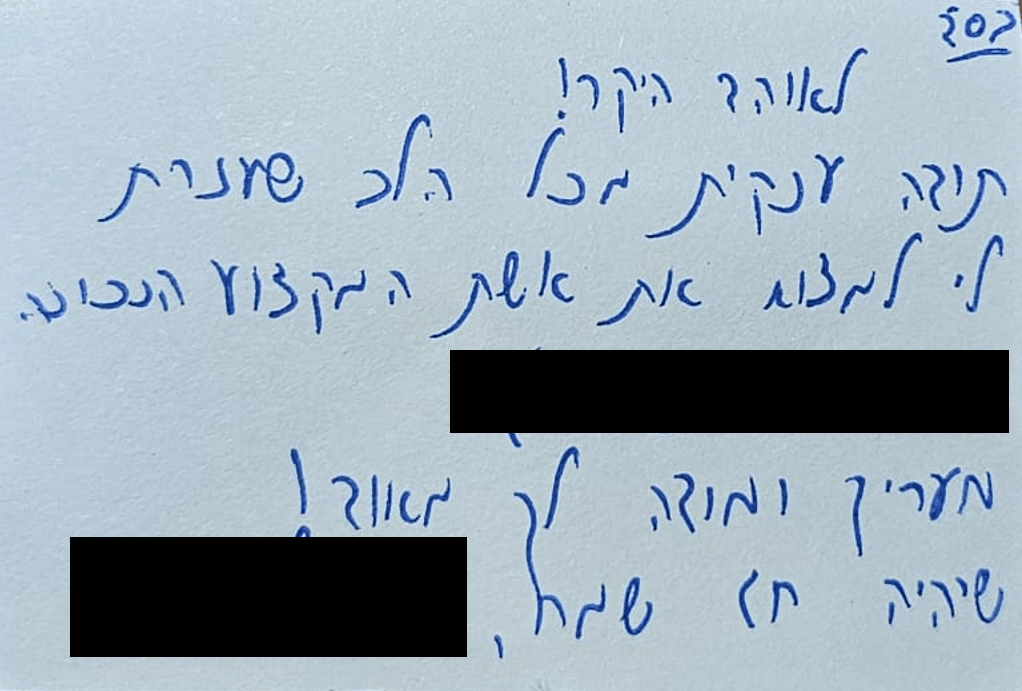 בס"ד
לאוהד היקר!
תודה ענקית מכל הלב שעזרת
לי למצוא את אשת המקצוע הנכונה.
מעריך ומודה לך מאוד!
שיהיה חג שמח,